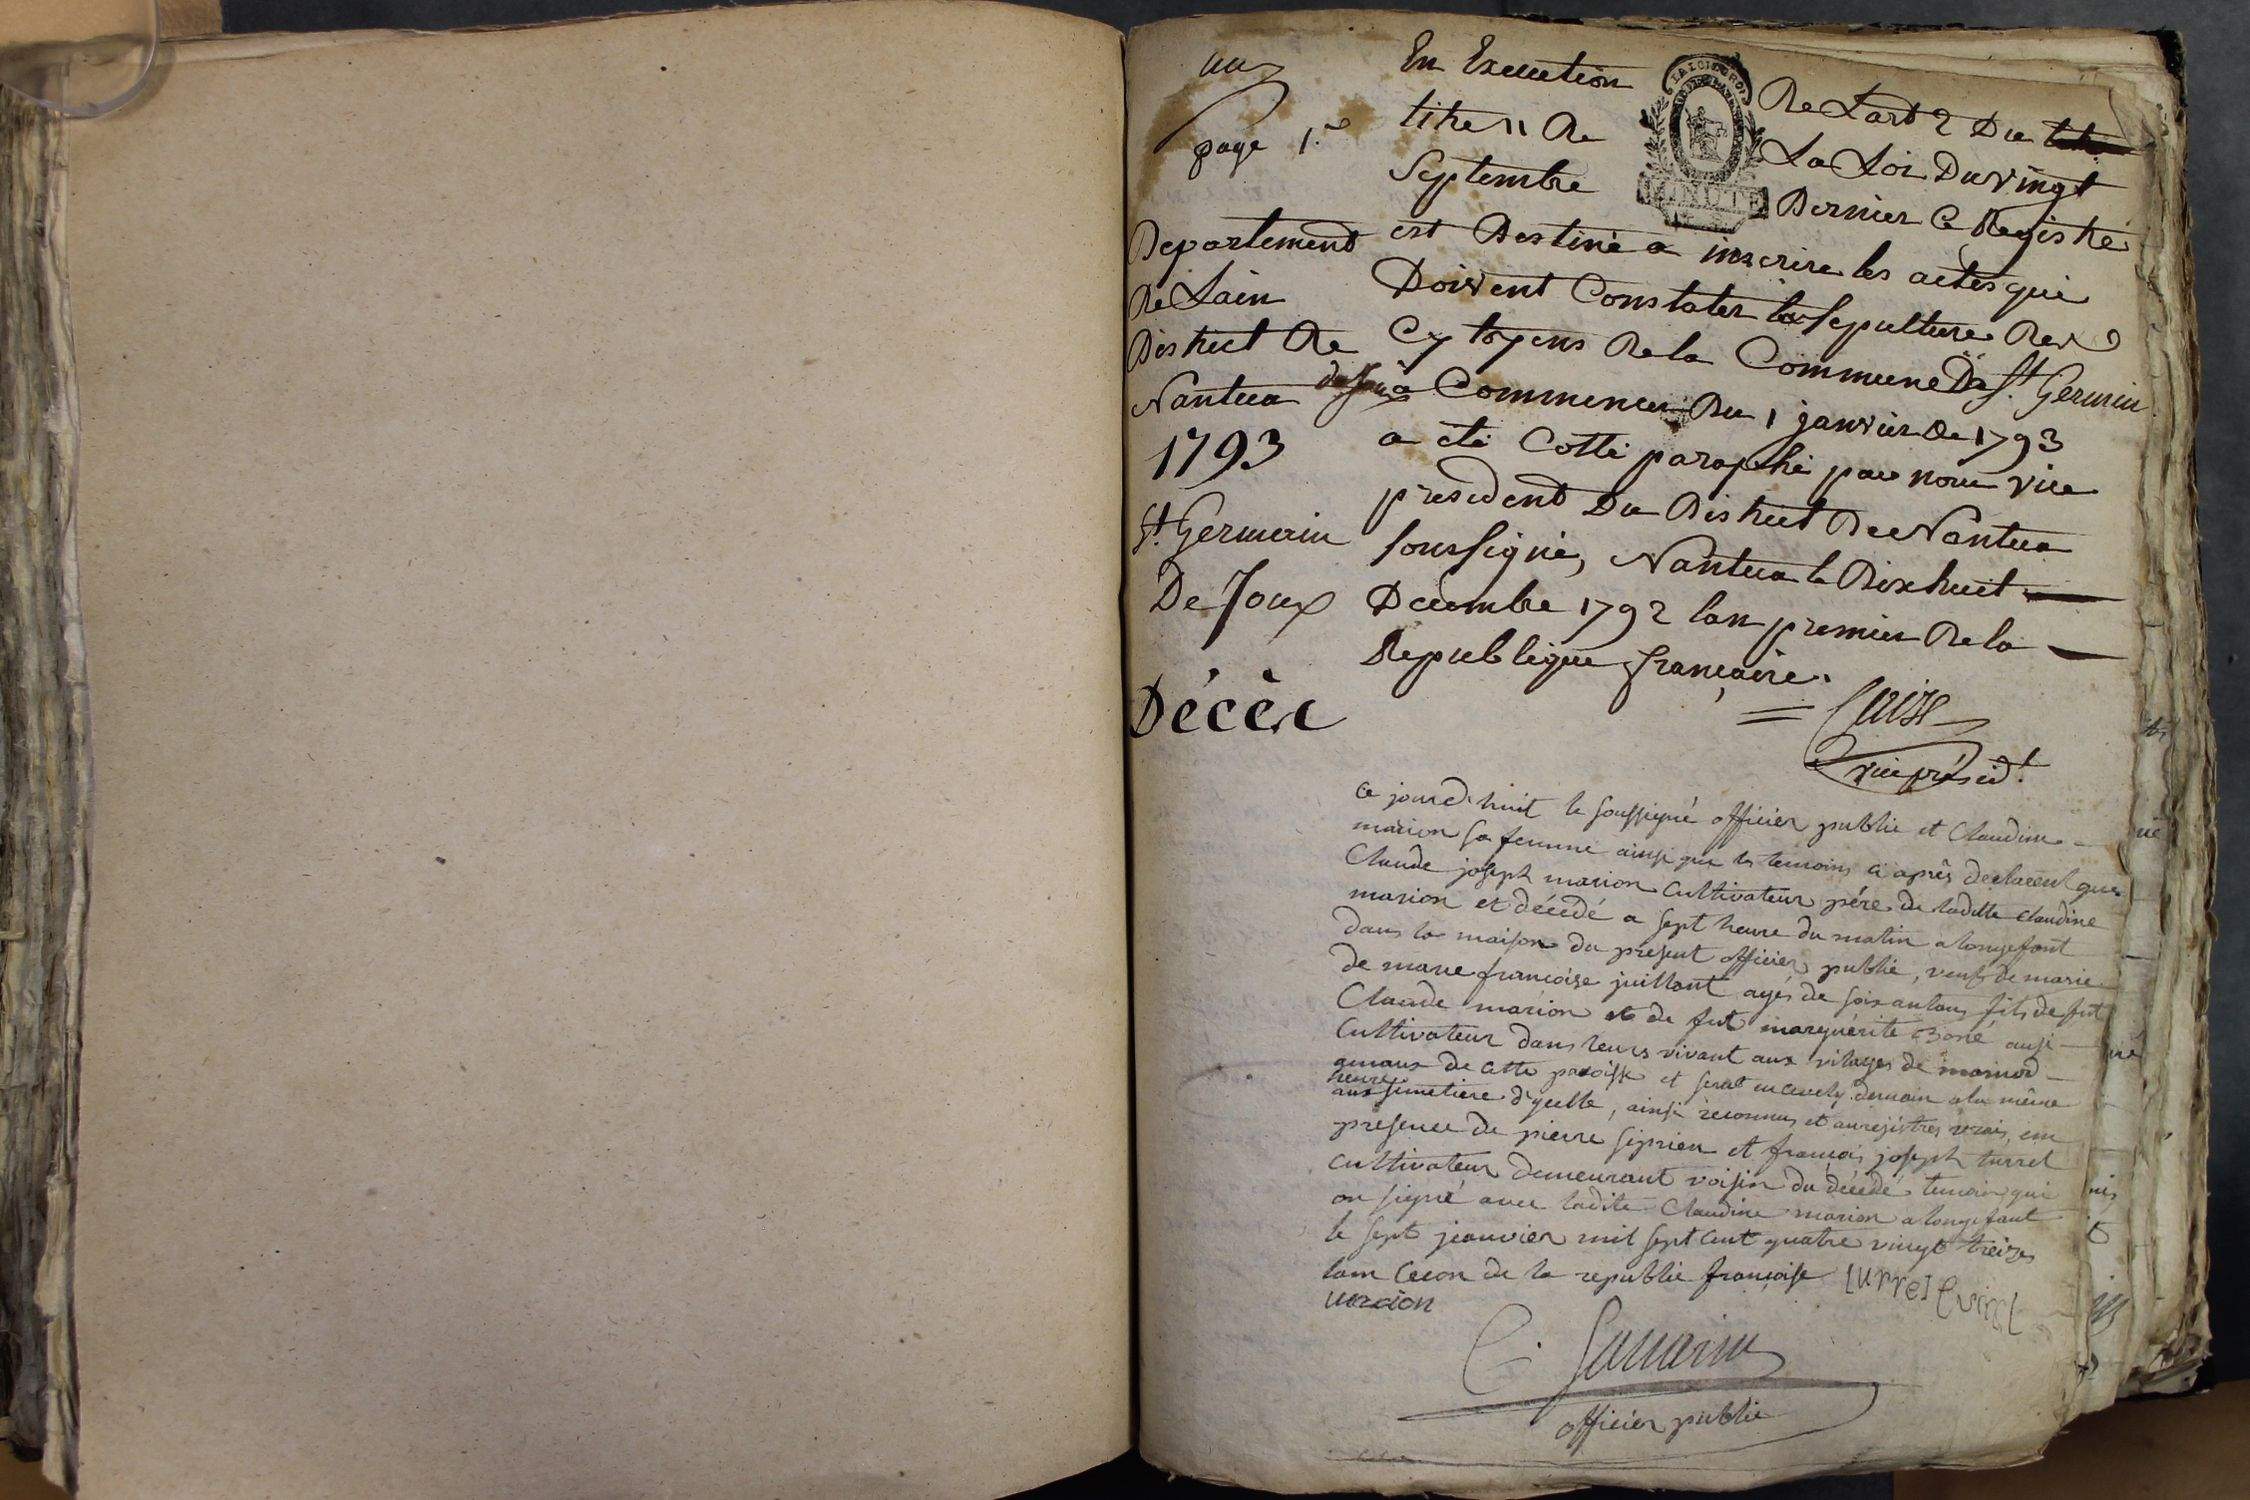 page 1.re
En Execution De Lart 2 Du
titre 11 De La Loi Du vingt
Septembre Dernier Ce Registre
est Destiné a inscrire les actes qui
Doivent Constater la Sepulture Des
Cytoyens De la Commune De St. Germin
de Joux a Commencer Du 1 janvier De 1793
a été Cotté paraphé par nous vice
president Du District De Nantua
soussigné, Nantua le Dix huit
Decembre 1792 lan premier De la
Republique francaise.
vice présid.t
Departement
De Lain
District De
Nantua
1793
St. Germain
De Joux
Décès
LA LOI LE ROI
MINUTE
ce jourd'huit le soussigné officier public et Claudine
marion sa femme ainsi que les temoins ci après declarent que
Claude joseph marion Cultivateur pére de laditte Claudine
marion et décédé a sept heure du matin a longefont
dans la maison du présent officier public, veuf de marie
de marie françoise juillant agés de soixantans fils de fut
Claude marion et de fut marguérite Boné ausi
Cultivateur dans leurs vivant aux vilages de
de cette paroisse et serat encevely demain a la même
heure
aux simetiere d'ycelle, ainsi reconnus et anregistres vrais, em
presence de pierre siprien et françois joseph turrel
Cultivateur demeurant voisin du décédé temoin qui
on signé avec ladite Claudine marion a longefant
le sept jeanvier mil sept cent quatre vingt treizes
lam cecon de la republic françoise turrel
marion
officier public